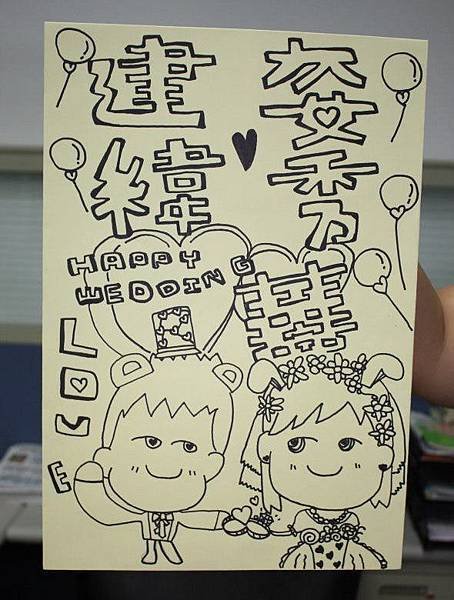 建緯
♥
秀
HAPPY
WEDDING
囍
LOVE